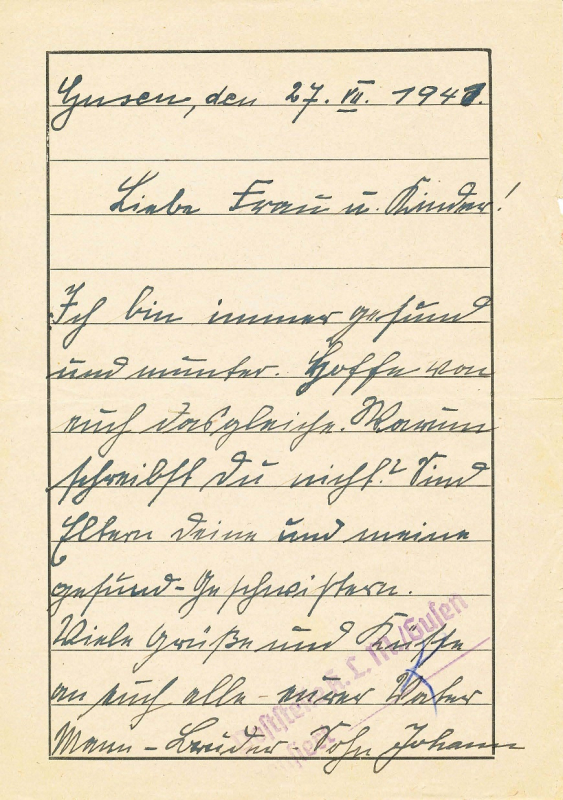 Gusen, den 27. VII. 1941.
Liebe Frau u. Kinder!
Ich bin immer gesund
und munter. Hoffe von
euch dasgleiche. Warum
schreibst du nicht? Sind
Eltern deine und meine
gesund - Geschwistern.
Viele Grüße und Küsse
an euch alle - eurer Vater
Mann - Bruder Sohn Johann
Poststelle K. L. M/Gusen